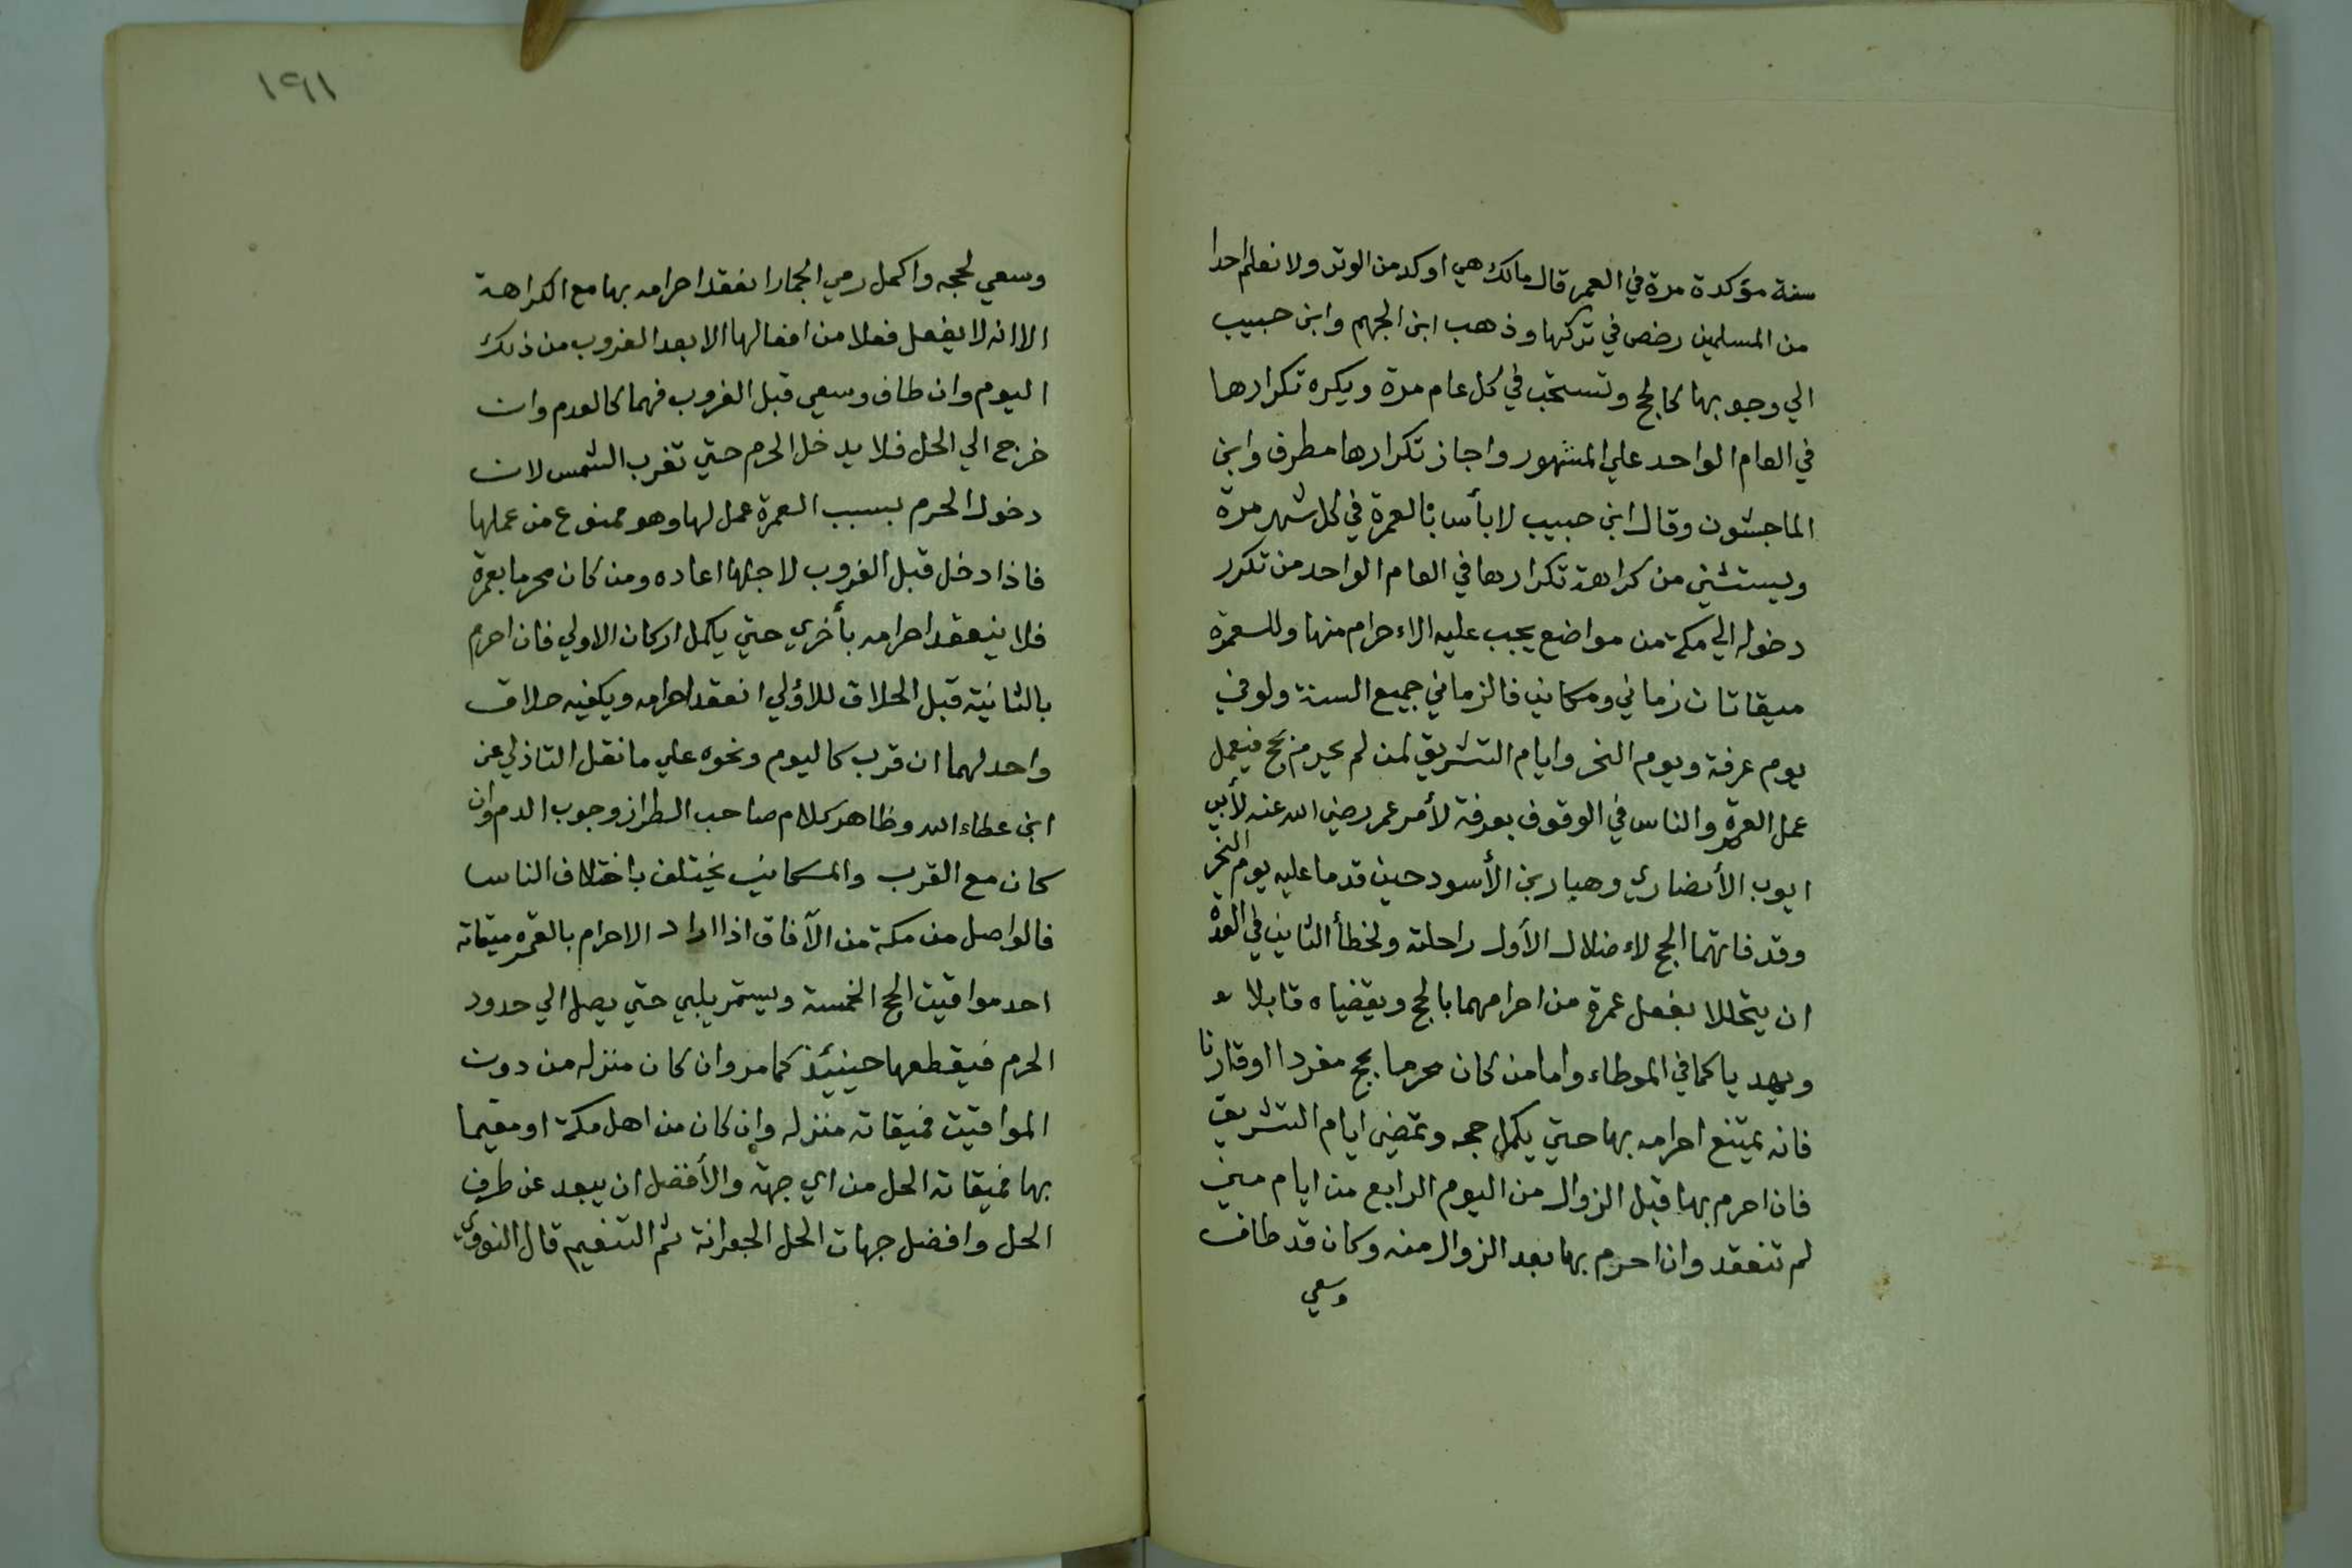 سنة مؤكدة مرة في العمر قال مالك هي اوكد من الوتر ولا نعلم احدا
من المسلمين رخص في تركها وذهب ابن الجهم وابن حبيب
الي وجوبها كالحج وتستحب في كل عام مرة ويكره تكرارها
في العام الواحد علي المشهور واجاز تكرارها مطرف وابن
الماجشون وقال ابن حبيب لا بأس بالعمرة في كل شهر مرة
ويستثني من كراهة تكرارها في العام الواحد من تكرر
دخوله الي مكة من مواضع يجب عليه الاءحرام منها وللعمرة
ميقاتان زماني ومكاني فالزماني جميع السنة ولو في
يوم عرفة ويوم النحر وايام التشريق لمن لم يحرم بحج فيعمل
عمل العمرة والناس في الوقوف بعرفة لأمر عمر رضي الله عنه لأبي
ايوب الأنصاري وهبار بن الأسود حين قدما عليه يوم النحر
وقد فاتهما الحج لاءضلال الأول راحلته ولخطأ الثاني في العدة
ان يتحللا بفعل عمرة من احرامهما بالحج ويقضياه قابلا و
ويهديا كما في الموطاء واما من كان محرما بحج مفردا او قارنا
فانه يمتنع احرامه بها حتي يكمل حجه وتمضي ايام التشريق
فان احرم بها قبل الزوال من اليوم الرابع من ايام مني
لم تنعقد وان احرم بها بعد الزوال منه وكان قد طاف
وسعي
١٩١
وسعي لحجه واكمل رمي الجمار انعقد احرامه بها مع الكراهة
الا انه لا يفعل فعلا من افعالها الا بعد الغروب من ذلك
اليوم وان طاف وسعي قبل الغروب فهما كالعدم وان
خرج الي الحل فلا يدخل الحرم حتي تغرب الشمس لان
دخول الحرم بسبب العمرة عمل لها وهو ممنوع من عملها
فاذا دخل قبل الغروب لاجلها اعاده ومن كان محرما بعمرة
فلا ينعقد احرامه بأخري حتي يكمل اركان الاولي فان احرم
بالثانية قبل الحلاق للاؤلي انعقد احرامه ويكفيه حلاق
واحد لهما ان قرب كاليوم ونحوه علي ما نقل التاذلي عن
ابن عطاء الله وظاهر كلام صاحب الطراز وجوب الدم وان
كان مع القرب والمكاني يختلف باختلاف الناس
فالواصل من مكة من الآفاق اذا اراد الاحرام بالعمره ميقاته
احد مواقيت الحج الخمسة ويستمر يلبي حتي يصل الي حدود
الحرم فيقطعها حينيئذ كما مر وان كان منزله من دون
المواقيت فميقاته منزله وان كان من اهل مكة او مقيما
بها فميقاته الحل من اي جهة والأفضل ان يبعد عن طرف
الحل وافضل جهات الحل الجعرانة ثم التنعيم قال النووي